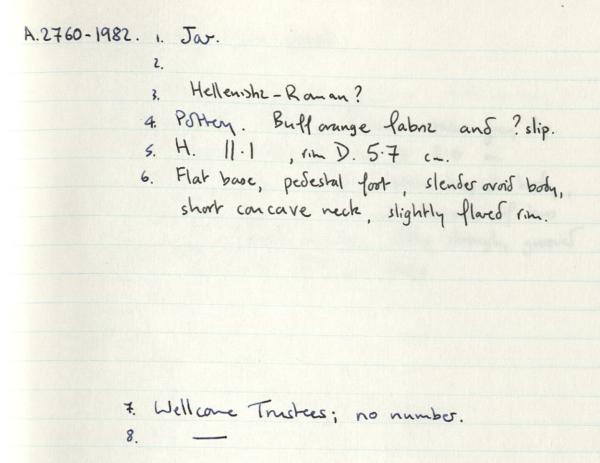 A.2760-1982. 1. Jar.
2.
3. Hellenistic-Roman?
4. Pottery. Buff orange fabric and ?slip.
5. H. 11.1 , rim D. 5.7 cm.
6. Flat base, pedestal foot, slender ovoid body,
short concave neck, slightly flared rim.
7. Wellcome Trustees; no number.
8. —